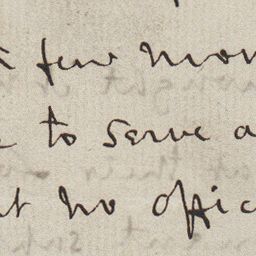 few mon
to serve a
no offic